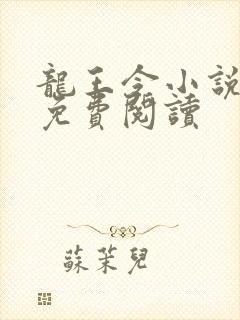 龍王令小說
免費閱讀
蘇茉兒